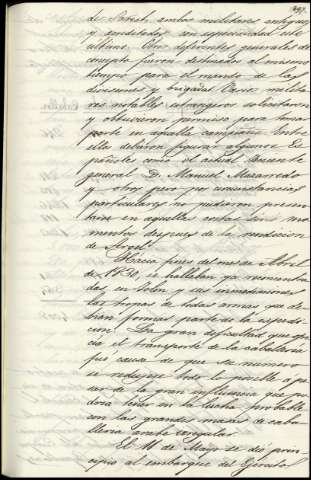 de Poret, ambos militares antiguos
y acreditados con especialidad este
ultimo. Con diferentes generales de
concepto fueron destinados al mismo
tiempo para el mando de las
divisiones y brigadas. Varios milita
res notables estrangeros solicitaron
y obtuvieron permiso para tomar
parte en aquella campaña. Entre
ellos debieron figurar algunos Es
pañoles como el actual Teniente
general D. Manuel Mazarredo
y otros pero por circunstancias
particulares no pudieron presen
tarse en aquellas costas sino mo
mentos despues de la rendicion
de Argel.
Hacia fines del mes de Abril
de 1830, se hallaban ya reconcentra
das en Tolon y sus inmediaciones
las tropas de todas armas que de
bian formar parte de la espedi
cion. La gran dificultad que ofre
cia el transporte de la caballeria
fué causa de que su numero
se redujese todo lo posible a pe
sar de la gran influencia que po
dria tener en la lucha probable
con las grandes masas de caba
lleria arabe irregular.
El 11 de Mayo se dió prin
cipio al embarque del Egercito